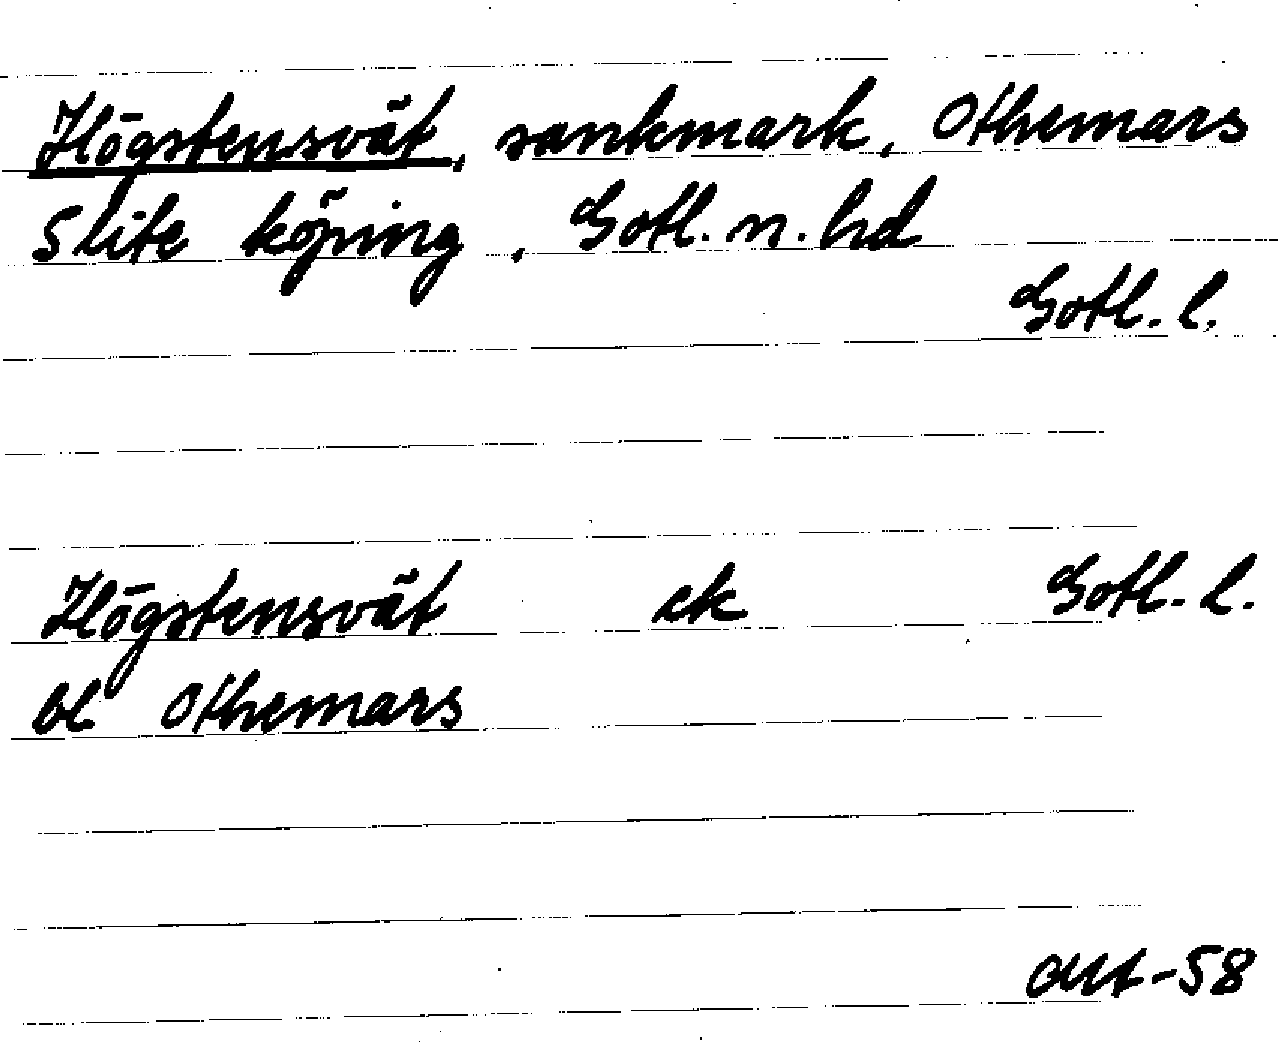 Högstensvät, sankmark, Othemars
Slite köping, Gotl. n. hd
Gotl. l.
Högstensvät ek Gotl. l.
bl Othemars
okt-58